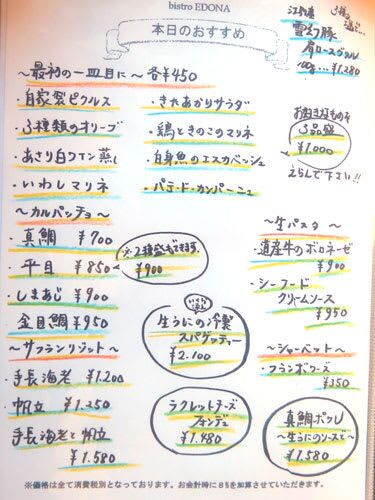 bistro EDONA
本日のおすすめ
雪幻豚
肩ロースグリル
100g… ¥1,280
〜最初の一皿目に〜 各¥450
・自家製ピクルス
・3種類のオリーブ
・あさり白ワイン蒸し
・いわしマリネ
・きたあかりサラダ
・鶏ときのこのマリネ
・白身魚のエスカベッシュ
・パテ・ド・カンパーニュ
お好きなもの
3品盛
¥1,000
えらんで下さい!!
〜カルパッチョ〜
・真鯛 ¥700
・平目 ¥850
・しまあじ ¥900
金目鯛 ¥950
※2種盛もできます
¥900
〜サフランリゾット〜
・手長海老 ¥1,200
帆立 ¥1,250
手長海老と帆立
¥1,580
生うにの冷製
スパゲッティー
¥2,100
ラクレットチーズ
フォンデュ
¥1,480
〜生パスタ〜
・遺産牛のボロネーゼ
¥900
・シーフード
クリームソース
¥950
〜シャーベット〜
・フランボワーズ
¥350
真鯛ポワレ
〜生うにのソースで〜
¥1,580
※価格は全て消費税別となっております。お会計時に8%を加算させていただきます。